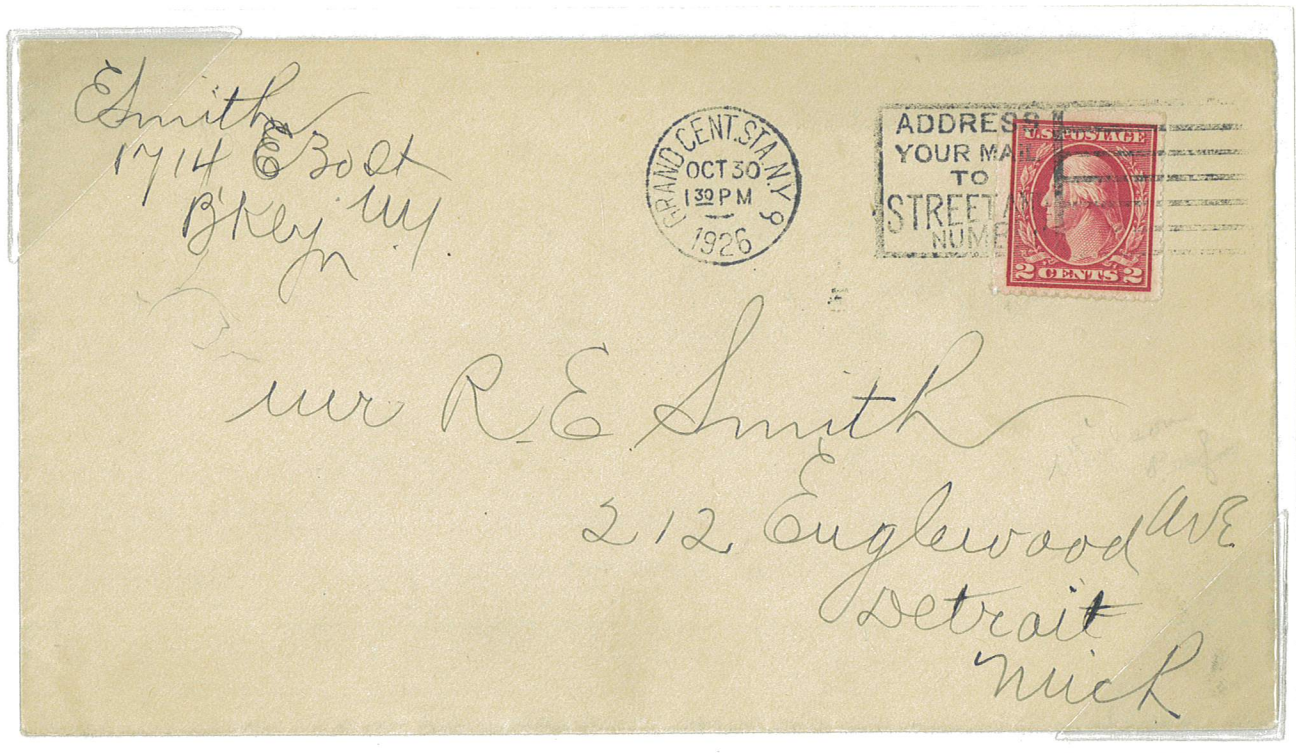 E Smith
1714 E 30 St
BKlyn NY
GRAND CENT. STA. N.Y.
OCT 30
1 30 PM
1926
ADDRESS
YOUR MAIL
TO
STREET
U.S. POSTAGE
2 CENTS 2
Mr R E Smith
212 Englewood AVE
Detroit
Mich